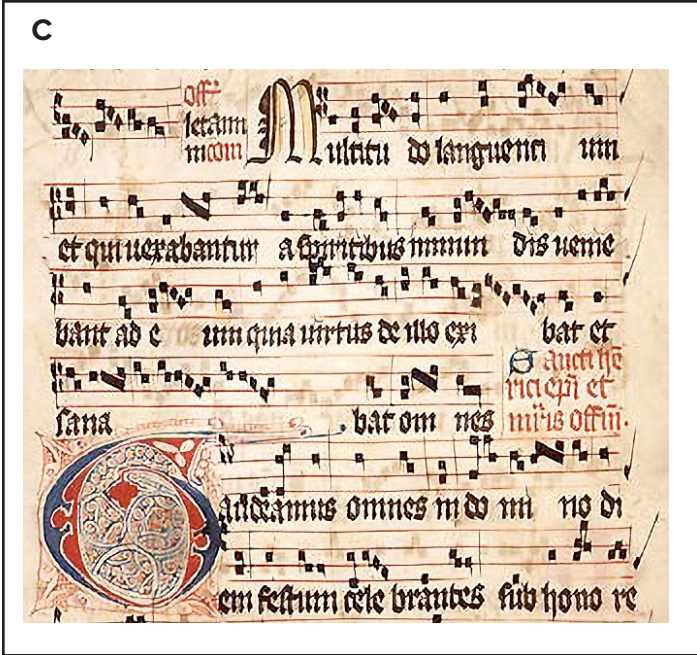 C
off
letami
in com
Multitu do languenti um
et qui uexabantur a spiritibus inmun dis uenie
bant ad e um quia uirtus de illo exi bat et
sana bat om nes
Sancti hē
rici epi et
Gaudeamus omnes in do mi no di
em festum cele brantes sub hono re